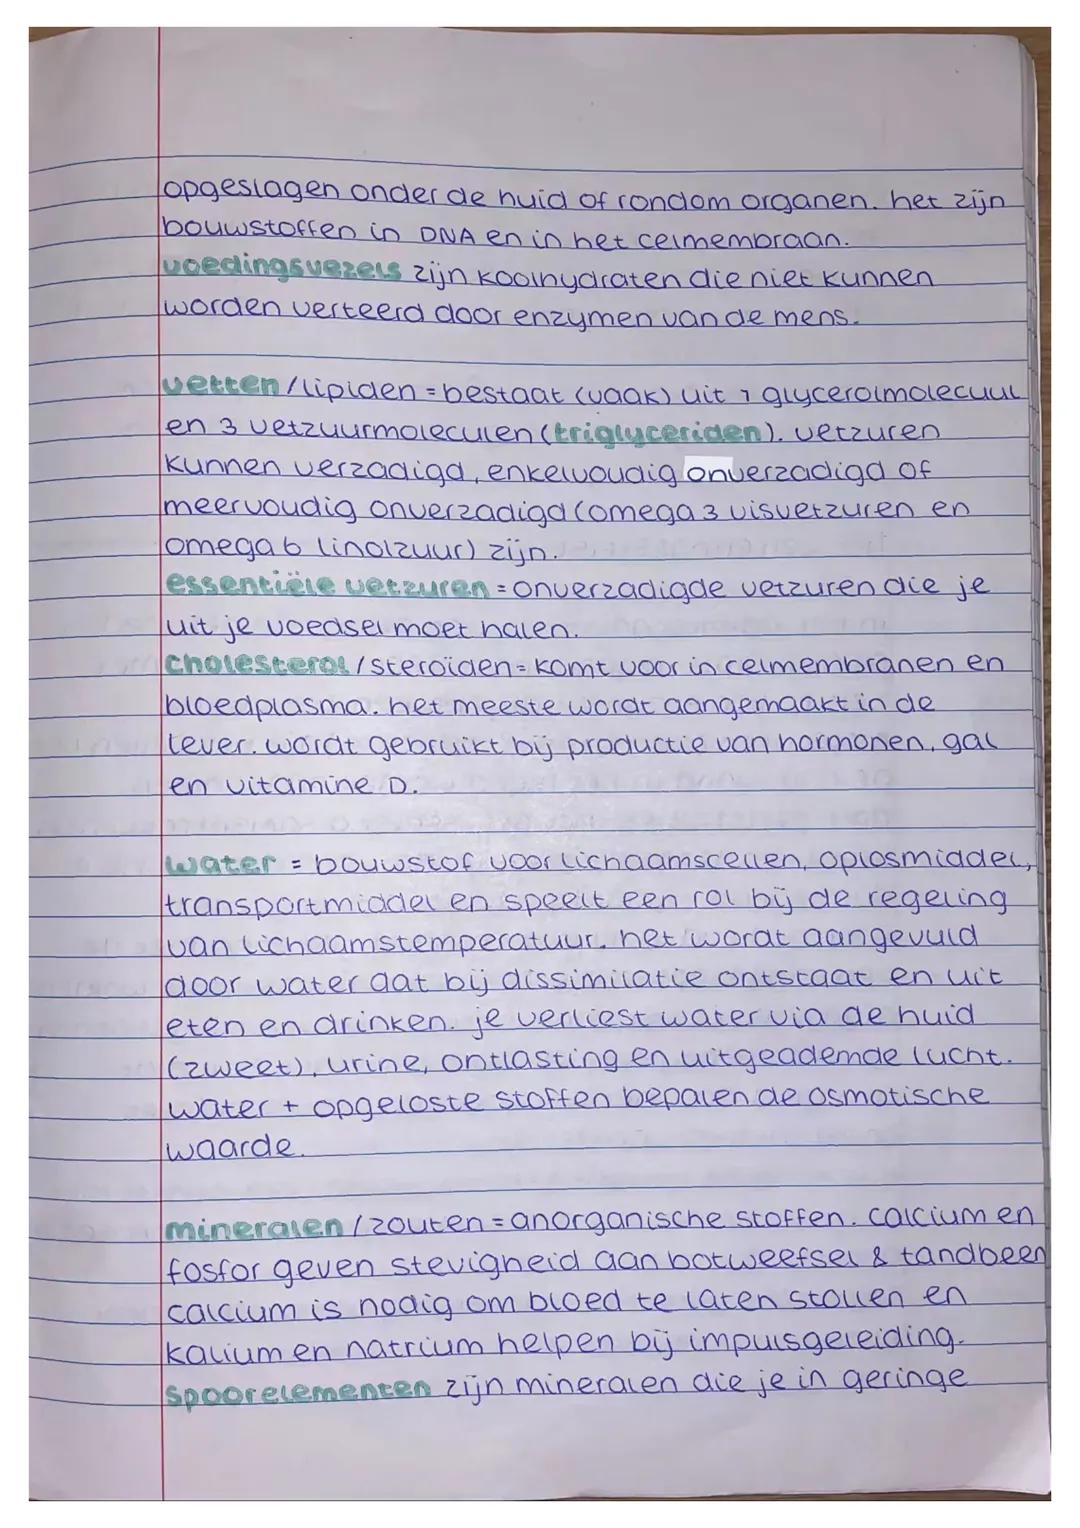 opgeslagen onder de huid of rondom organen. het zijn
bouwstoffen in DNA en in het celmembraan.
voedingsvezels zijn koolhydraten die niet kunnen
worden verteerd door enzymen van de mens.
vetten / lipiden = bestaat (vaak) uit 1 glycerolmolecuul
en 3 vetzuurmoleculen (triglyceriden). vetzuren
kunnen verzadigd, enkelvoudig onverzadigd of
meervoudig onverzadigd (omega 3 visvetzuren en
omega 6 linolzuur) zijn.
essentiële vetzuren = onverzadigde vetzuren die je
uit je voedsel moet halen.
cholesterol / steroïden = komt voor in celmembranen en
bloedplasma. het meeste wordt aangemaakt in de
lever. wordt gebruikt bij productie van hormonen, gal
en vitamine D.
water = bouwstof voor lichaamscellen, oplosmiddel,
transportmiddel en speelt een rol bij de regeling
van lichaamstemperatuur. het wordt aangevuld
door water dat bij dissimilatie ontstaat en uit
eten en drinken. je verliest water via de huid
(zweet), urine, ontlasting en uitgeademde lucht.
water + opgeloste stoffen bepalen de osmotische
waarde.
mineralen / zouten = anorganische stoffen. calcium en
fosfor geven stevigheid aan botweefsel & tandbeen
calcium is nodig om bloed te laten stollen en
kalium en natrium helpen bij impulsgeleiding.
spoorelementen zijn mineralen die je in geringe